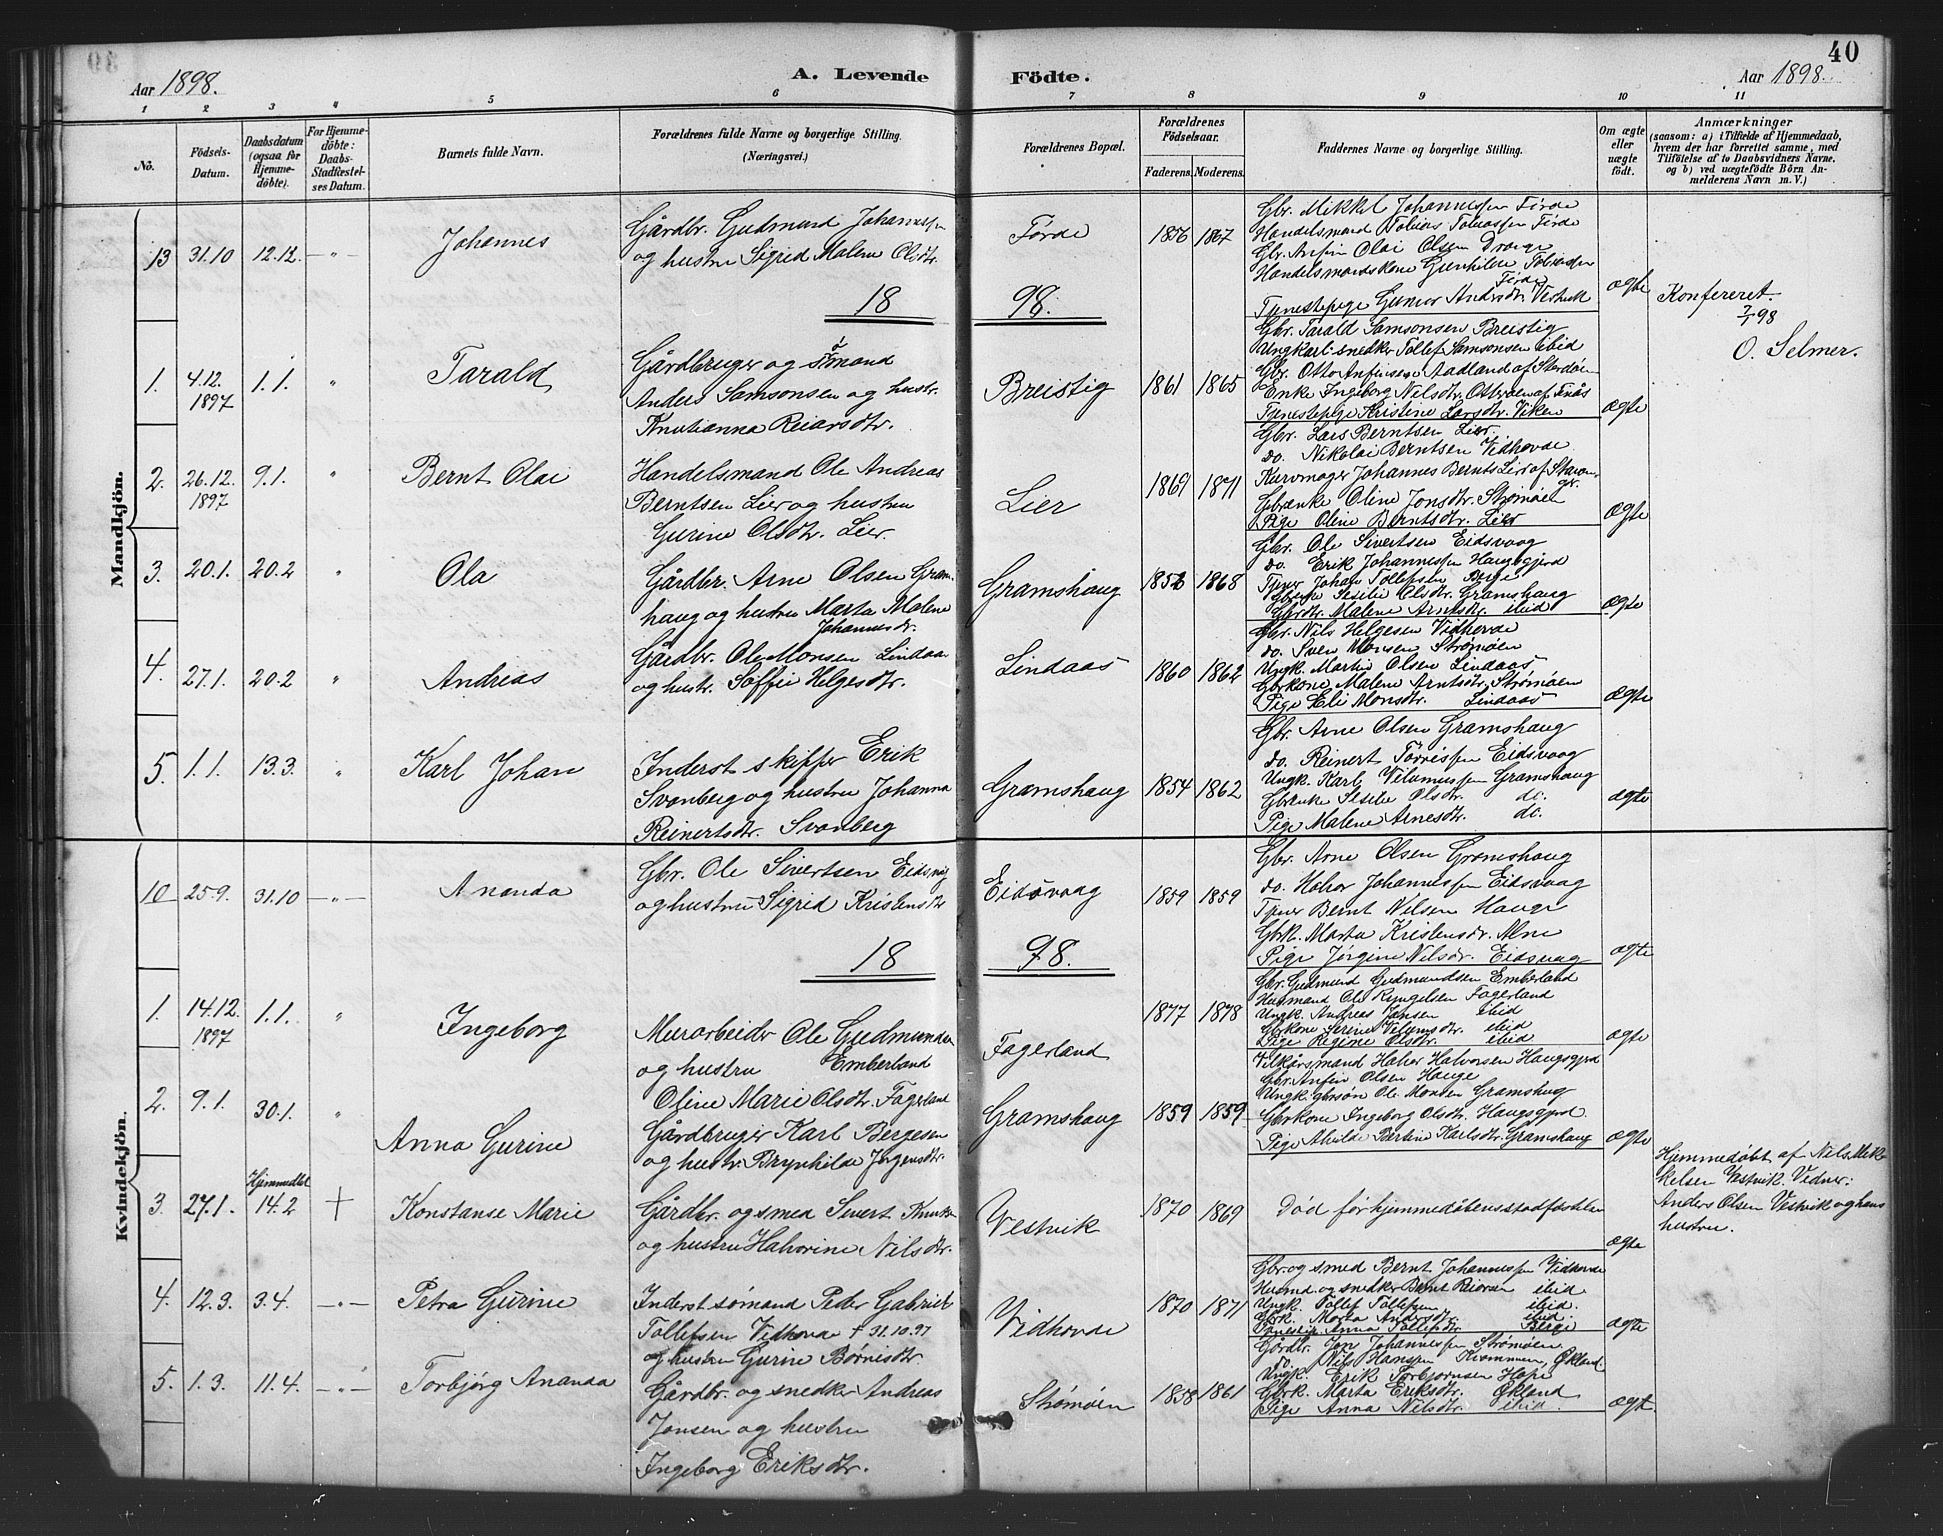 40
Aar 1898.
A. Levende Födte.
Aar 1898.
1 2 3 " 5 6 7 8 9 10 11
No.
Födsels-
Datum.
Daabsdatum
(ogsaa for
Hjemme-
döbte).
For Hjemme-
döbte:
Daabs-
Stadfæstel-
ses Datum.
Barnets fulde Navn.
Forældrenes fulde Navne og borgerlige Stilling.
(Næringsvei.)
Forældrenes Bopæl.
Forældrenes
Födselsaar.
Faderens. Moderens.
Faddernes Navne og borgerlige Stilling.
Om ægte
eller
uægte
födt.
Anmærkninger
(saasom: a) i Tilfælde af Hjemmedaab,
hvem der har forrettet samme, med
Tilföielse af to Daabsvidners Navne,
og b) ved uægtefödte Börn An-
melderens Navn m. V.)
Mandkjön.
13 31.10 12.12. — " — Johannes
Gårdbr. Gudmund Johannessen
og hustru Sigrid Malene Olsdtr.
Førde 1856 1867
Gbr. Mikkel Johannessen Førde
Handelsmand Tobias Tobiassen Førde
Gbr. Anfin Olai Olsen
Handelsmandskone Gunhilde Tobiassen
Førde
Tjenestepige Gunvor Andersdtr. Vestvik
ægte
18 98.
Konfereret.
7/1 98
O. Selmer.
1. 4.12. 1897 1.1. " Tarald
Gårdbruger og sømand
Anders Samsonsen og hustr.
Knutianna Reiarsdtr.
Breistig 1861 1865
Gbr. Tarald Samsonsen Breistig
Ungkarl snedker Tollef Samsonsen ibid
Gbr. Otto Anfinsen Aadland af Stordøen
Enke Ingeborg Nilsdtr. Otterøen af Finås
Tjenestepige Kristine Larsdtr. Viken
ægte
2. 26.12. 1897 9.1. " Bernt Olai
Handelsmand Ole Andreas
Berntsen Lier og hustru
Gurine Olsdtr. Lier.
Lier 1869 1871
Gbr. Lars Berntsen Lier.
do. Nikolai Berntsen Vidhovde
Kurvmager Johannes Bernts. Lier af
Gbrenke Oline Jonsdtr. Strømøen
Pige Oline Berntsdtr. Lier
ægte
3. 20.1. 20.2 " Ola
Gårdbr. Arne Olsen Grams-
haug og hustru Marta Malene
Johannesdtr.
Gramshaug 1868
Gbr. Ole Sivertsen Eidsvaag
do. Erik Johannessen Haugsgjerd
Tjener Johan Tollefsen Berge
Sesilie Olsdtr. Gramshaug
Gbrdtr. Malene Arnesdtr. ibid
ægte
4. 27.1. 20.2 " Andreas
Gårdbr. Ole Monsen Lindaas
og hustr. Soffie Helgesdtr.
Lindaas 1860 1862
Gbr. Nils Helgesen Vidhovde
do. Sven Monsen Strømøen
Ungk. Martin Olsen Lindaas
Gbrkone Malene Arntsdtr. Strømøen
Pige Eli Monsdtr. Lindaas
ægte
5. 1.1. 13.3. " Karl Johan
Inderst skipper Erik
Svanberg og hustru Johanna
Reinertsdtr. Svanberg
Gramshaug 1854 1862
Gbr. Arne Olsen Gramshaug
do. Reinert Tørressen Eidsvaag
Ungk. Karl Vilumsen Gramshaug
Gbrenke Sesilie Olsdtr. do.
Pige Malene Arnesdtr. do.
ægte
Kvindekjön.
10 25.9. 31.10 — " — Ananda
Gbr. Ole Sivertsen Eidsvåg
og hustru Sigrid Kristensdtr
Eidsvaag 1859 1859
Gbr. Arne Olsen Gramshaug
do. Halvor Johannessen Eidsvaag
Tjener Bernt Nilsen Hauge
Gbrk. Marta Kristensdtr. Alne
Pige Jørgine Nilsdtr. Eidsvaag
ægte
18 98.
1. 14.12. 1897 1.1. " Ingeborg
Murarbeider Ole Gudmundsen
og hustru Emberland
Oline Marie Olsdtr. Fagerland
Fagerland 1877 1878
Gbr. Gudmund Gudmundsen Emberland
Husmand Ole Fagerland
Ungk. Andreas Jansen ibid
Gbrkone Serine Vilumsdtr. ibid
Pige Regine Olsdtr. ibid
ægte
2. 9.1. 30.1. " Anna Gurine
Gårdbruger Karl Bergesen
og hustr. Brynhilde Jørgensdtr.
Gramshaug 1859 1859
Vilkårsmand Halvor Halvorsen Haugsgjerd
Gbr. Anfin Olsen Hauge
Ungk. gbrsøn Ole Monsen Gramshaug
Gbrkone Ingeborg Olsdtr. Haugsgjerd
Pige Alvilde Bertine Karlsdtr. Gramshaug
ægte
3. 27.1. Hjemmedøbt 14.2 † Konstanse Marie
Gårdbr. og smed Sivert Knutsen
og hustru Halvorine Nilsdtr.
Vestvik 1870 1869
Død før hjemmedåbens stadfæstelse
ægte
Hjemmedøbt af Nils Mik-
kelsen Vestvik. Vidner:
Anders Olsen Vestvik og hans
hustru.
4. 12.3. 3.4. — " — Petra Gurine
Inderst sømand Peder Gabriel
Tollefsen Vidhovde † 31.10.97
og hustru Gurine Børnisdtr.
Vidhovde 1870 1871
Gbr. og smed Bernt Johannessen Vidhovde
Husmd. og snedker Bernt Reiersen ibid
Ungk. Tollef Tollefsen ibid.
Gbrk. Marta Andersdtr. ibid.
Tjenestep. Anna Tollefsdtr. Berge
ægte
5. 1.3. 11.4. — " — Torbjørg Ananda
Gårdbr. og snedker Andreas
Jonsen og hustru
Ingeborg Eriksdtr.
Strømøen 1858 1861
Gårdbr. Jon Johannessen Strømøen
do. Nils Hanssen Kvammen, Økland
Ungk. Erik Torbjørnsen Hope
Gbrk. Marta Eriksdtr. Økland
Pige Anna Nilsdtr. ibid.
ægte.